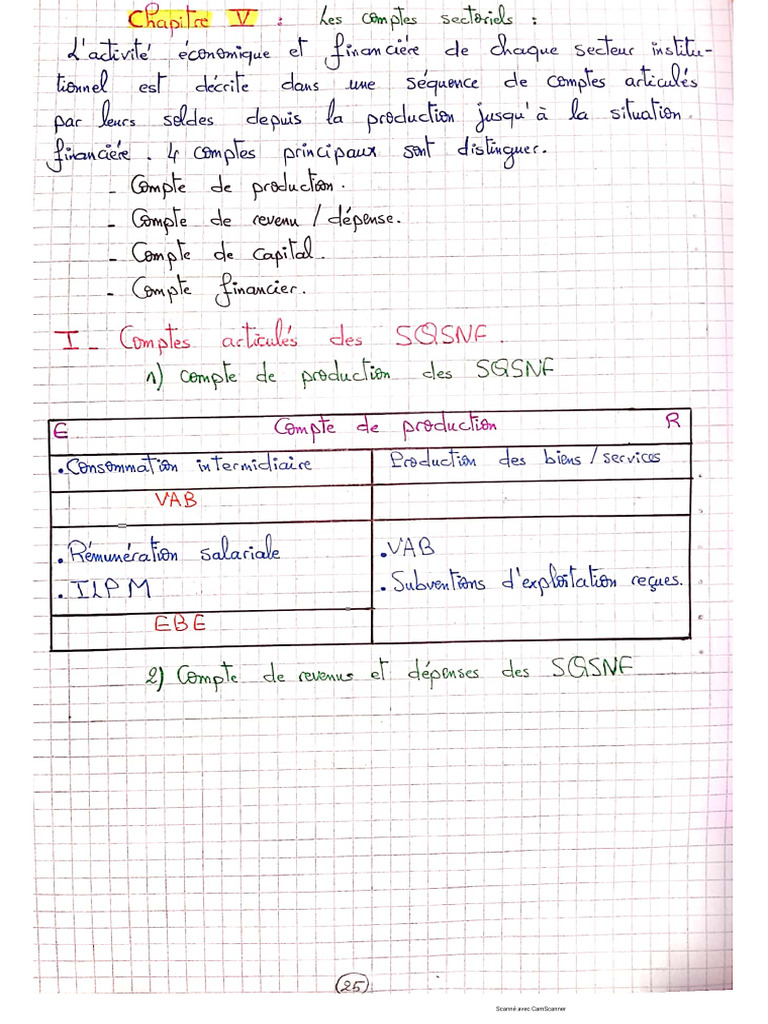 Chapitre V : Les comptes sectoriels :
L'activité économique et financière de chaque secteur institu-
tionnel est décrite dans une séquence de comptes articulés
par leurs soldes depuis la production jusqu'à la situation
financière. 4 comptes principaux sont distinguer.
- Compte de production.
- Compte de revenu / dépense.
- Compte de capital.
- Compte financier.
I - Comptes articulés des SQSNF.
1) compte de production des SQSNF
E Compte de production R
• Consommation intermidiaire Production des biens / services
VAB
• Rémunération salariale • VAB
• ILPM • Subventions d'exploitation reçues.
EBE
2) Compte de revenus et dépenses des SQSNF
25
Scanné avec CamScanner